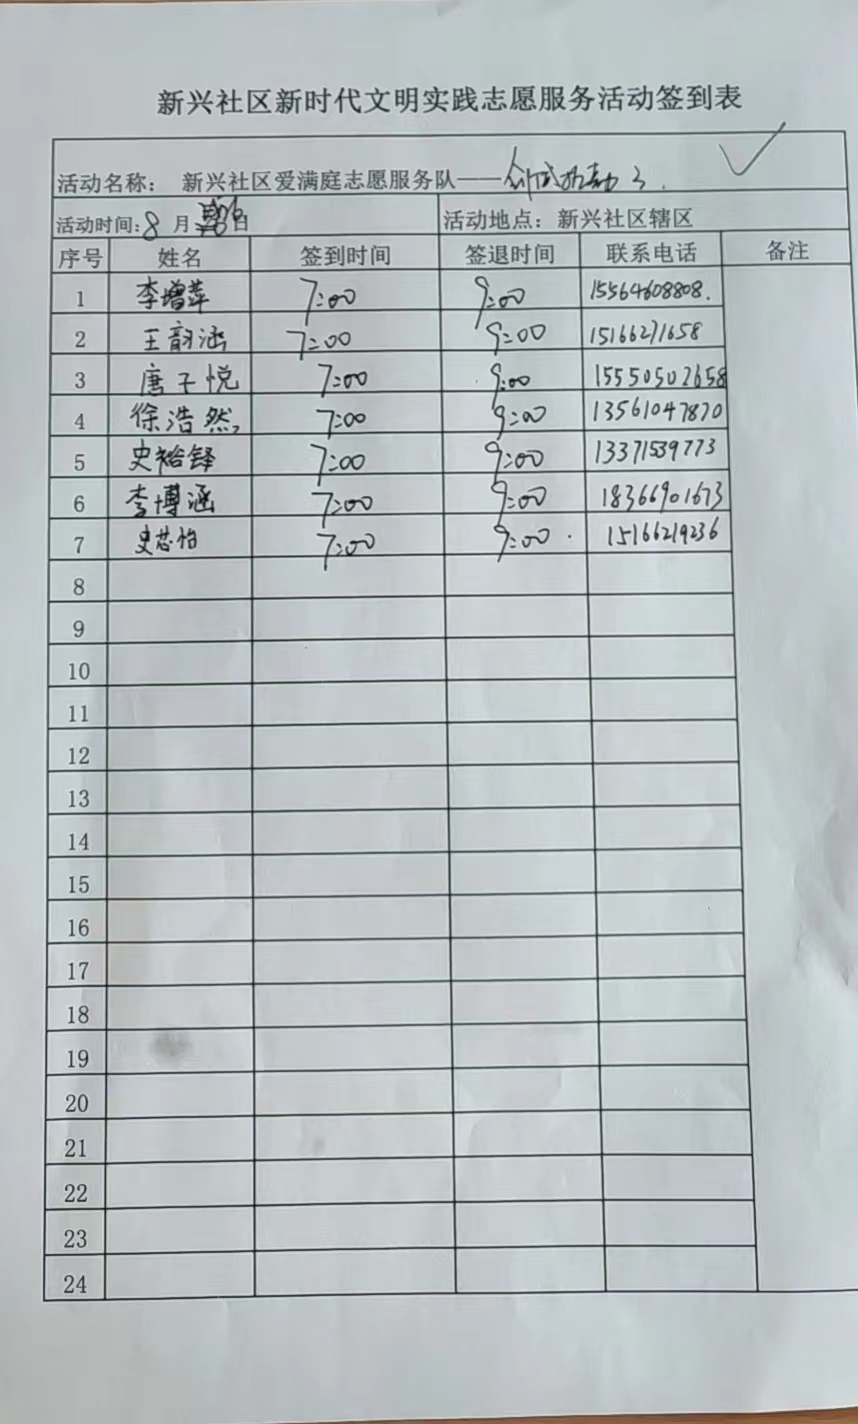 新兴社区新时代文明实践志愿服务活动签到表
活动名称: 新兴社区爱满庭志愿服务队——创城活动
活动时间:8月 日 活动地点:新兴社区辖区
序号 姓名 签到时间 签退时间 联系电话 备注
1 李增萍 7:00 9:00 15564608808.
2 王韵涵 7:00 9:00 15166271658
3 唐子悦 7:00 9:00 15550502658
4 徐浩然 7:00 9:00 13561047870
5 史裕铎 7:00 9:00 13371539773
6 李博涵 7:00 9:00 18366901673
7 史芯怡 7:00 9:00 15166219236
8
9
10
11
12
13
14
15
16
17
18
19
20
21
22
23
24